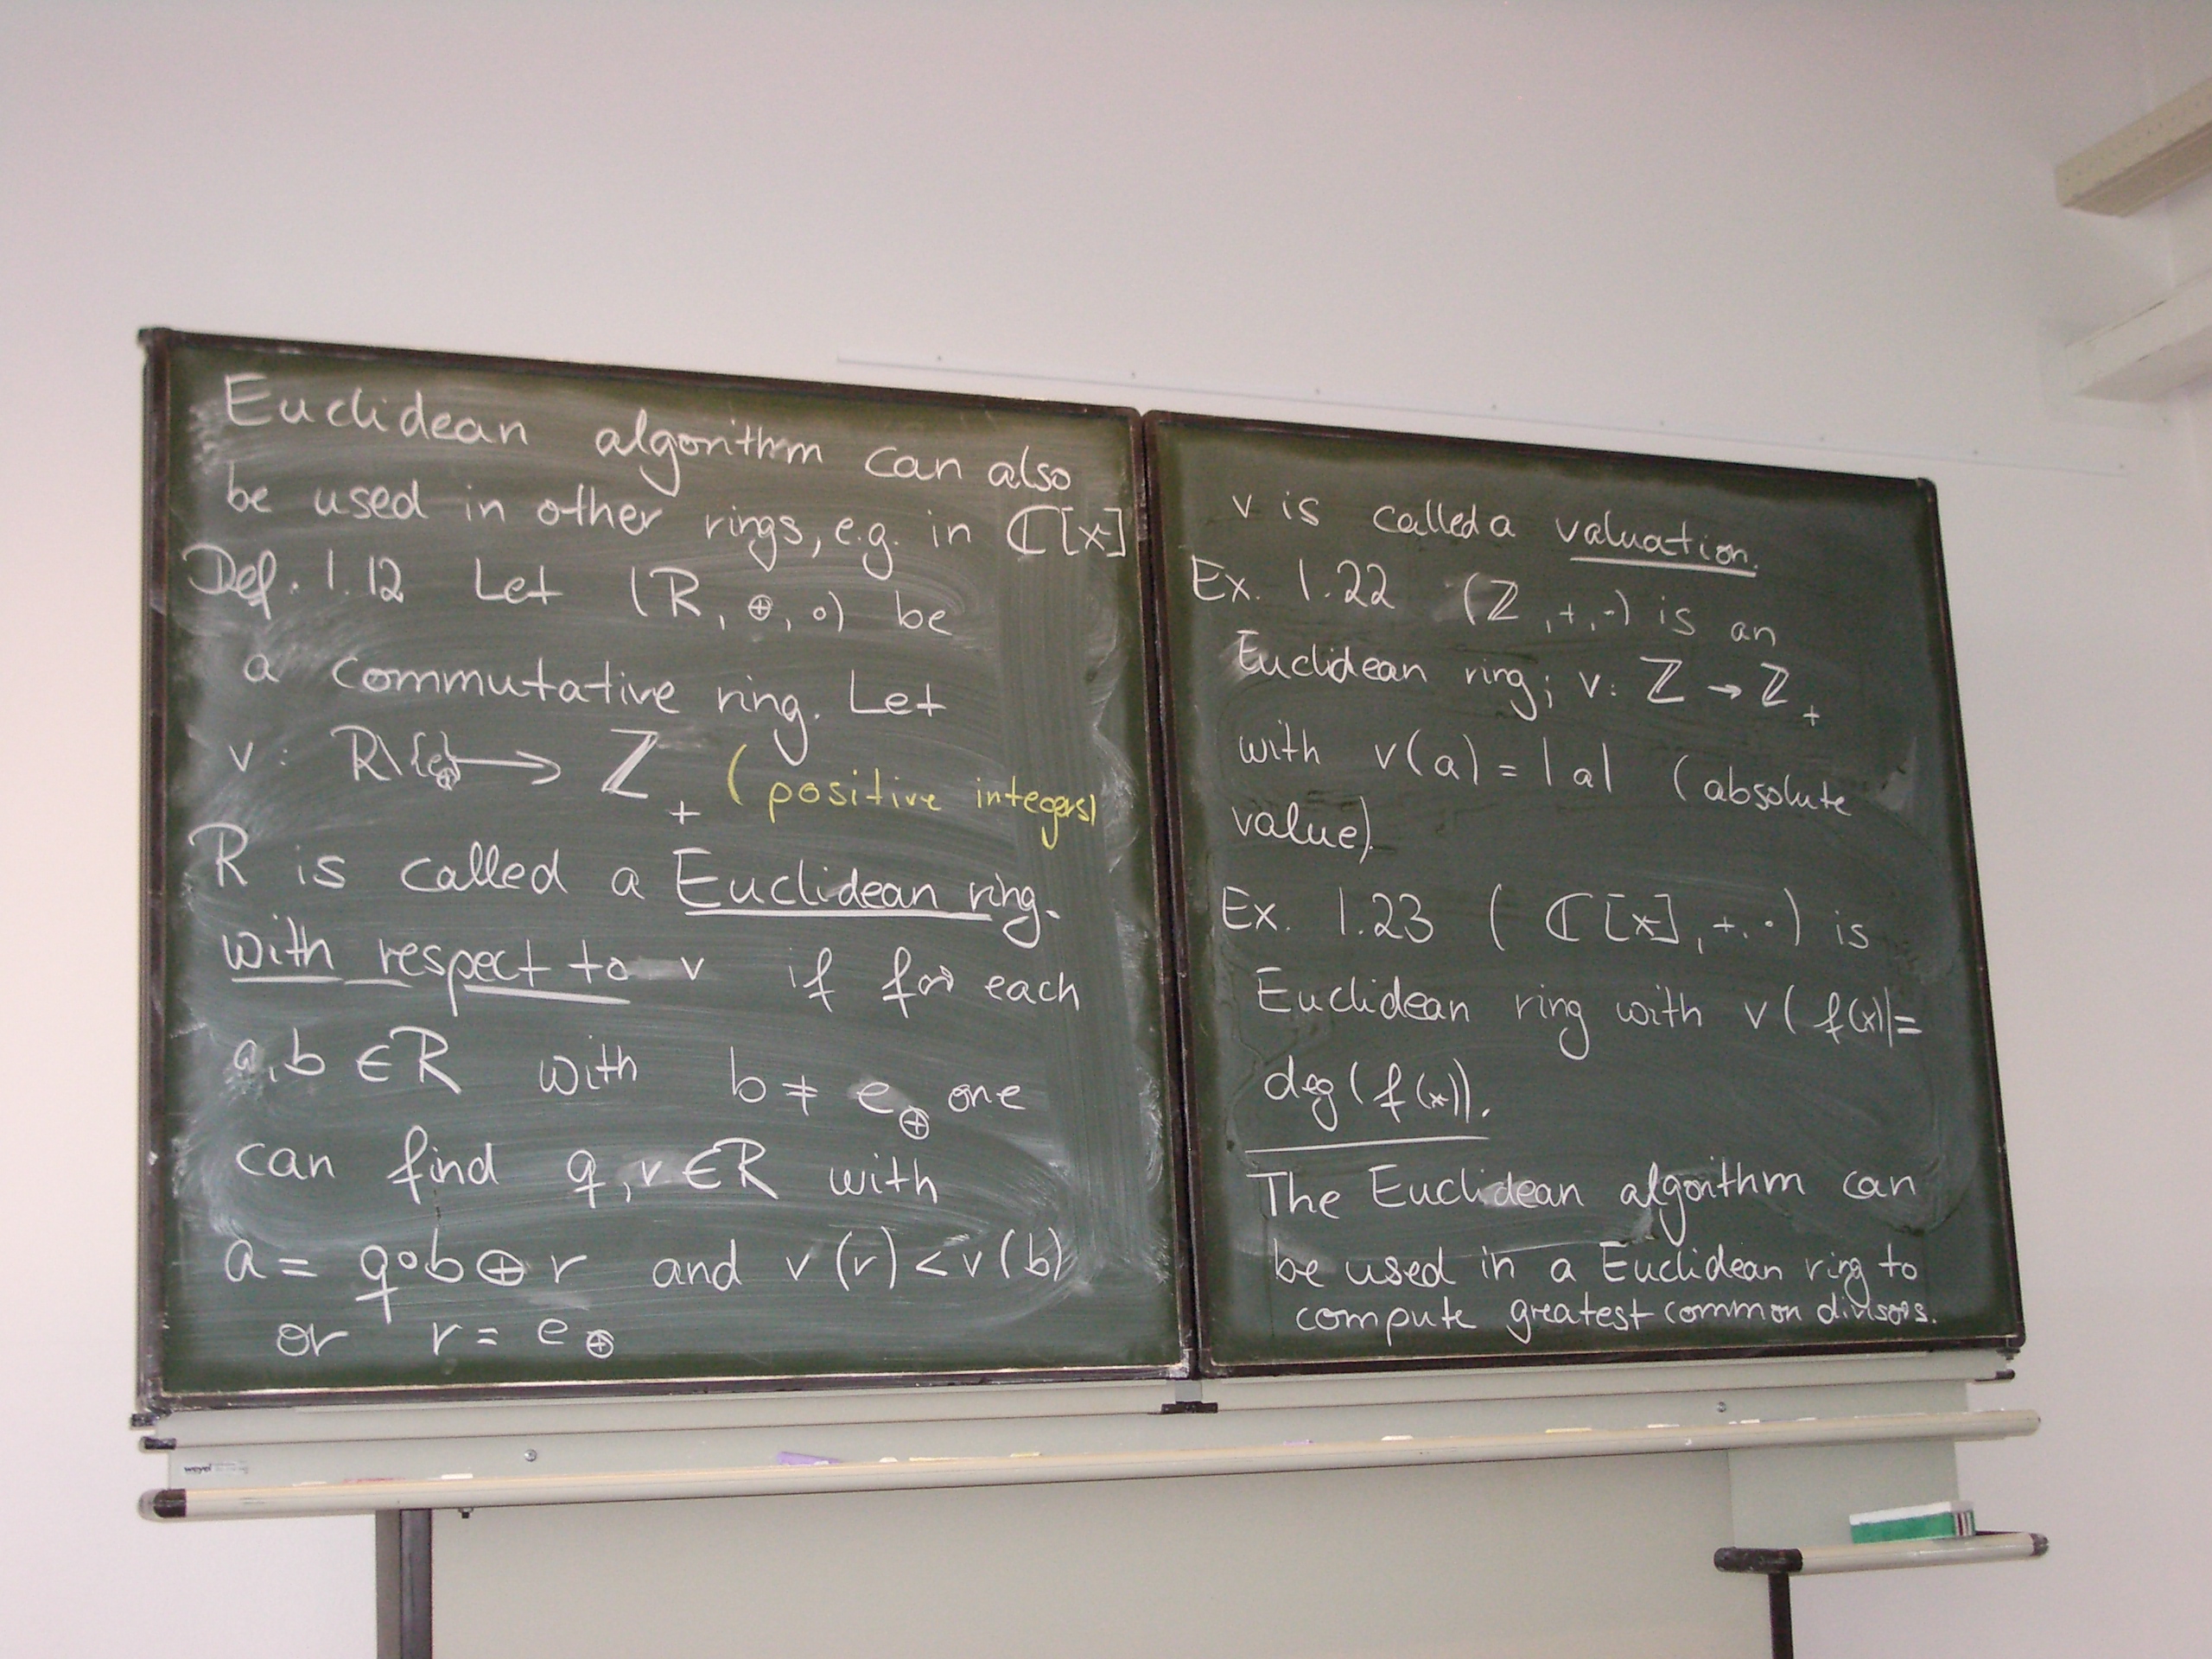 Euclidean algorithm can also
be used in other rings, e.g. in ℂ[x]
Def. 1.12 Let (R, ⊕, ∘) be
a commutative ring. Let
v: R\{e⊕} → ℤ₊ (positive integers)
R is called a Euclidean ring
with respect to v if for each
a,b ∈ R with b ≠ e⊕ one
can find q, r ∈ R with
a = q∘b ⊕ r and v(r) < v(b)
or r = e⊕
v is called a valuation.
Ex. 1.22 (ℤ, +, ·) is an
Euclidean ring; v: ℤ → ℤ₊
with v(a) = |a| (absolute
value).
Ex. 1.23 (ℂ[x], +, ·) is
Euclidean ring with v(f(x)) =
deg(f(x)).
The Euclidean algorithm can
be used in a Euclidean ring to
compute greatest common divisors.
weyel